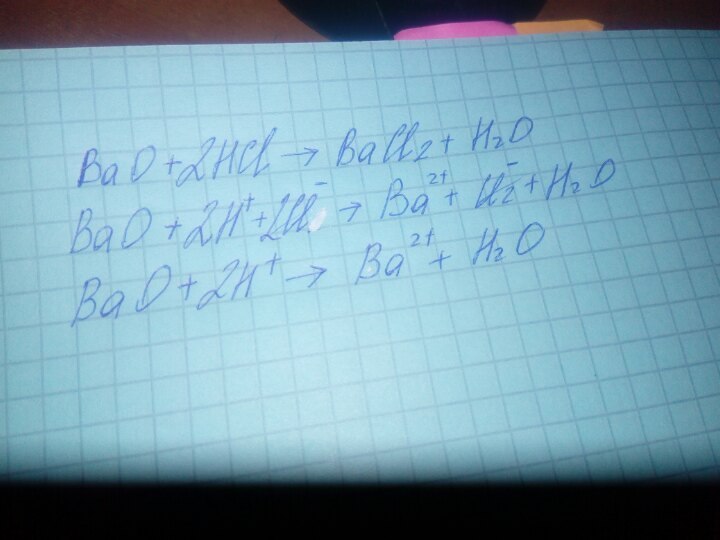 BaO + 2HCl → BaCl₂ + H₂O
BaO + 2H⁺ + 2Cl⁻ → Ba²⁺ + Cl₂⁻ + H₂O
BaO + 2H⁺ → Ba²⁺ + H₂O